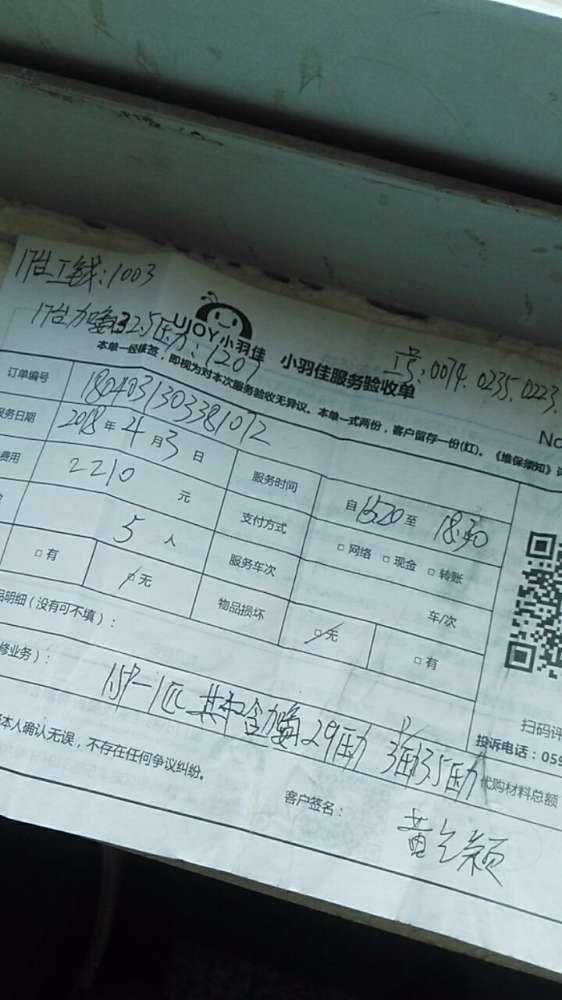 17台工钱:1003
17台加 32.5压力:1207
UJOY小羽佳 小羽佳服务验收单
工号:0074.0235.0223.
本单一经核签,即视为对本次服务验收无异议。本单一式两份,客户留存一份(红)。《维保须知》
No
订单编号 1804031303381072
服务日期 2018年4月3日 服务时间 自16:20至18:30
费用 2210元 支付方式 □网络 □现金 □转账
5人 服务车次 车/次
□有 □无 物品损坏 □无 □有
品明细(没有可不填):
修业务):
1.5P-1匹 共 29压力 35压力
扫码评
投诉电话:059
代购材料总额
本人确认无误,不存在任何争议纠纷。
客户签名: 黄 颖